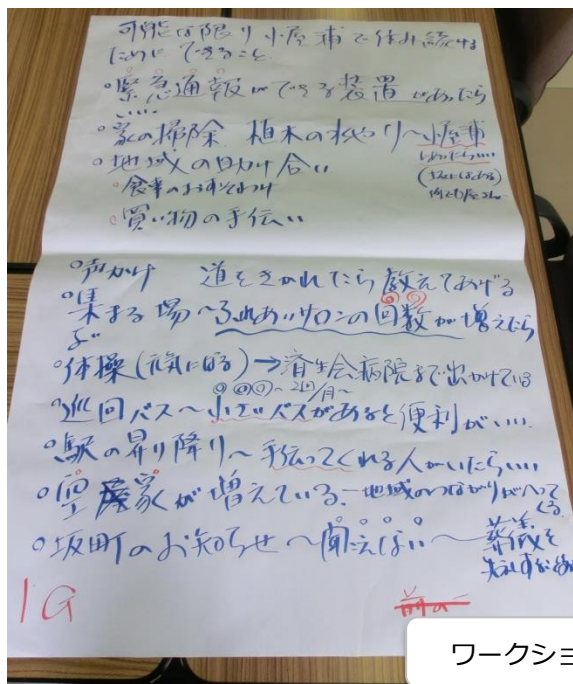 可能な限り小屋浦で住み続ける
ためにできること
○緊急通報ができる装置があったら
いい
○家の掃除 植木の水やり～小屋浦
○地域の助け合い
○食事のおすそわけ
○買い物の手伝い
○声かけ 道をきかれたら教えてあげる
○集まる場～ふれあいサロンの回数が増えたら
○体操(元気になる)→済生会病院まで出かけている
○巡回バス～小さいバスがあると便利がいい
2回/月～
○駅の昇り降り～手伝ってくれる人がいたらいい
○空家が増えている 地域のつながりがへって
くる
○坂町のお知らせ～聞こえない～葬儀を
1G
ワークショ